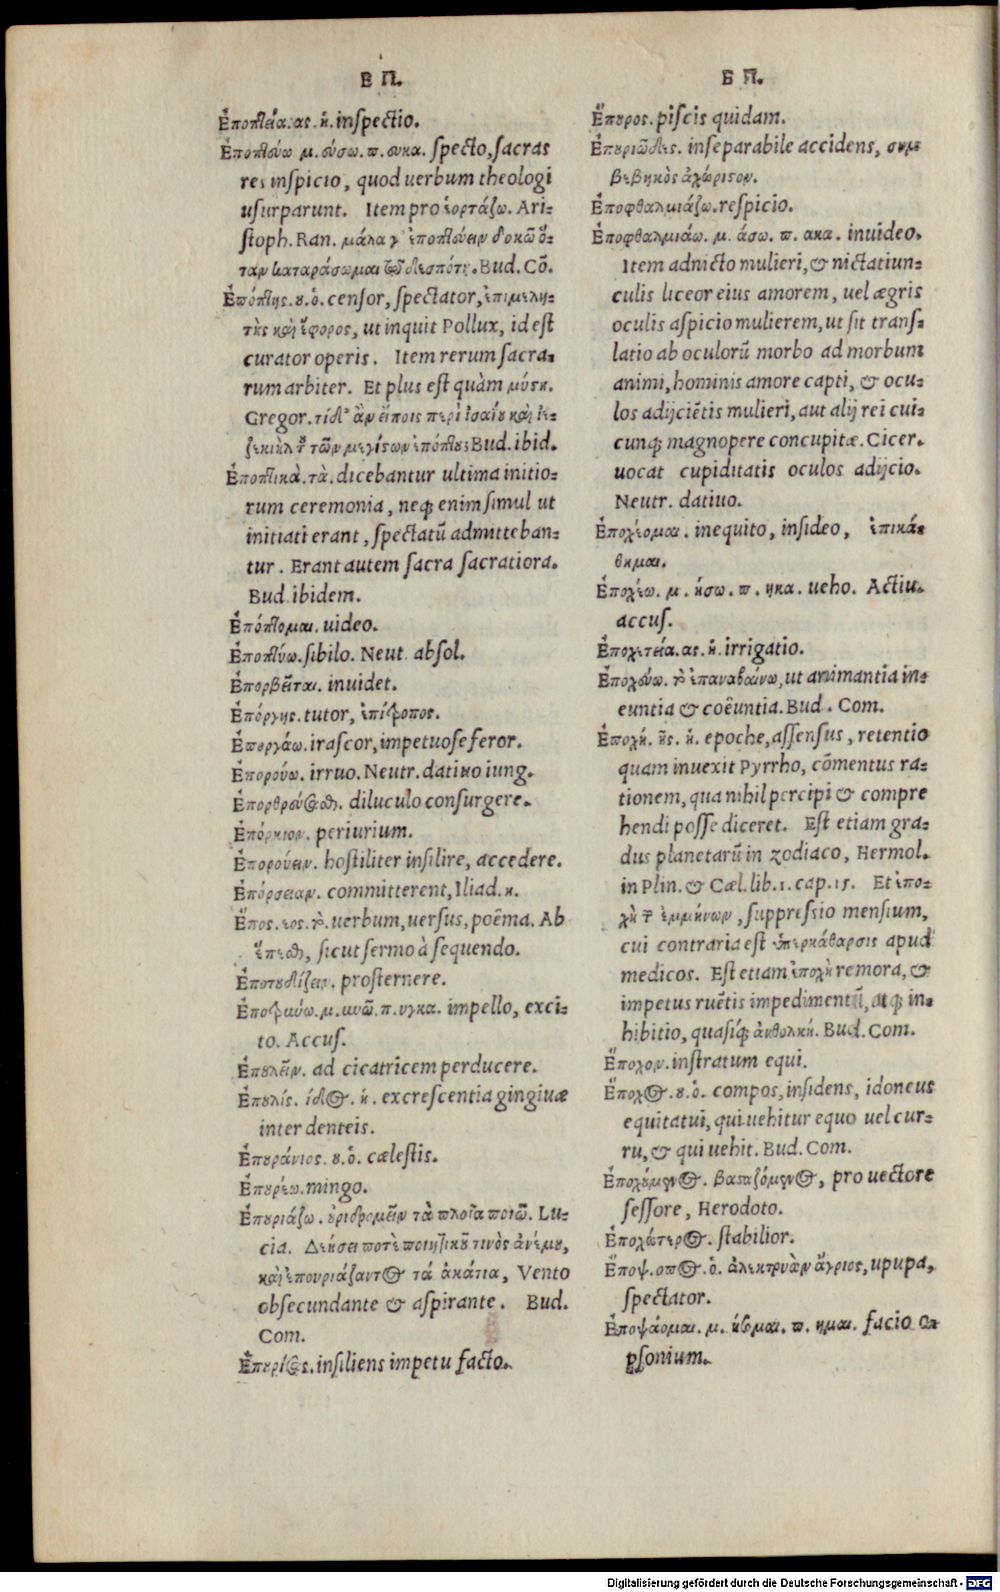 Ε Π.
Ἐποπτεία. ας. ἡ. inſpectio.
Ἐποπτεύω μ. εύσω. π. ευκα. ſpecto, ſacras
res inſpicio, quod uerbum theologi
uſurparunt. Item pro ἑορτάζω. Ari-
ſtoph. Ran. μάλα γ' ἐποπτεύειν δοκῶ ὅ-
ταν καταράσωμαι τῷ δεσπότῃ. Bud. Cō.
Ἐπόπτης. ου. ὁ. cenſor, ſpectator, ἐπιμελη-
τὴς καὶ ἔφορος, ut inquit Pollux, id eſt
curator operis. Item rerum ſacra-
rum arbiter. Et plus eſt quàm μύστη.
Gregor. τίδ' ἂν εἴποις περὶ ἰσαίου καὶ ἰε-
ζεκιὴλ τοῦ τῶν μεγίστων ἐπόπτου; Bud. ibid.
Ἐποπτικὰ. τὰ. dicebantur ultima initio-
rum ceremonia, neqꝫ enim ſimul ut
initiati erant, ſpectatū admitteban-
tur. Erant autem ſacra ſacratiora.
Bud. ibidem.
Ἐπόπτομαι. uideo.
Ἐποπτύω. ſibilo. Neut. abſol.
Ἐπορβεῖται. inuidet.
Ἐπόργης. tutor, ἐπίτροπος.
Ἐποργάω. iraſcor, impetuoſe feror.
Ἐπορούω. irruo. Neutr. datiuo iung.
Ἐπορθρεύεσθαι. diluculo conſurgere.
Ἐπόρκιον. periurium.
Ἐπορούειν. hoſtiliter inſilire, accedere.
Ἐπόρσειαν. committerent, Iliad. κ.
Ἔπος. εος. τὸ. uerbum, uerſus, poëma. Ab
ἕπεσθαι, ſicut ſermo à ſequendo.
Ἐποτουδίζειν. proſternere.
Ἐποτρύνω. μ. υνῶ. π. υγκα. impello, exci-
to. Accuſ.
Ἐπουλεῖν. ad cicatricem perducere.
Ἐπουλίς. ίδος. ἡ. excreſcentia gingiuæ
inter denteis.
Ἐπουράνιος. ου. ὁ. cæleſtis.
Ἐπουρέω. mingo.
Ἐπουριάζω. οὐριοδρομεῖν τὰ πλοῖα ποιῶ. Lu-
cia. Δεήσει ποτὲ ποιητικοῦ τινὸς ἀνέμου,
καὶ ἐπουριάζαντος τά ἀκάτια, Vento
obſecundante & aſpirante. Bud.
Com.
Ἐπουρίσας. inſiliens impetu facto.
Ε Π.
Ἔπουρος. piſcis quidam.
Ἐπουσιῶδες. inſeparabile accidens, συμ-
βεβηκὸς ἀχώριστον.
Ἐποφθαλμιάζω. reſpicio.
Ἐποφθαλμιάω. μ. άσω. π. ακα. inuideo.
Item adnicto mulieri, & nictatiun-
culis liceor eius amorem, uel ægris
oculis aſpicio mulierem, ut ſit tranſ-
latio ab oculorū morbo ad morbum
animi, hominis amore capti, & ocu-
los adijciētis mulieri, aut alij rei cui-
cunqꝫ magnopere concupitæ. Cicer.
uocat cupiditatis oculos adijcio.
Neutr. datiuo.
Ἐποχέομαι. inequito, inſideo, ἐπικά-
θημαι.
Ἐποχέω. μ. ήσω. π. ηκα. ueho. Actiu.
accuſ.
Ἐποχετεία. ας. ἡ. irrigatio.
Ἐποχεύω. τὸ ἐπαναβαίνω, ut animantia in-
euntia & coëuntia. Bud. Com.
Ἐποχή. ῆς. ἡ. epoche, aſſenſus, retentio
quam inuexit Pyrrho, cōmentus ra-
tionem, qua nihil percipi & compre
hendi poſſe diceret. Eſt etiam gra-
dus planetarū in zodiaco, Hermol.
in Plin. & Cæl. lib. 1. cap. 15. Et ἐπο-
χὴ τῶν ἐμμήνων, ſuppreſſio menſium,
cui contraria eſt ὑπερκάθαρσις apud
medicos. Eſt etiam ἐποχὴ remora, &
impetus ruētis impedimentū, atqꝫ in-
hibitio, quaſiqꝫ ἀνθολκή. Bud. Com.
Ἔποχον. inſtratum equi.
Ἔποχος. ου. ὁ. compos, inſidens, idoneus
equitatui, qui uehitur equo uel cur-
ru, & qui uehit. Bud. Com.
Ἐποχούμενος. βασταζόμενος, pro uectore
ſeſſore, Herodoto.
Ἐποχώτερος. ſtabilior.
Ἔποψ. οπος. ὁ. ἀλεκτρυὼν ἄγριος, upupa,
ſpectator.
Ἐποψάομαι. μ. ήσομαι. π. ημαι. facio o-
pſonium.
Digitalisierung gefördert durch die Deutsche Forschungsgemeinschaft - DFG